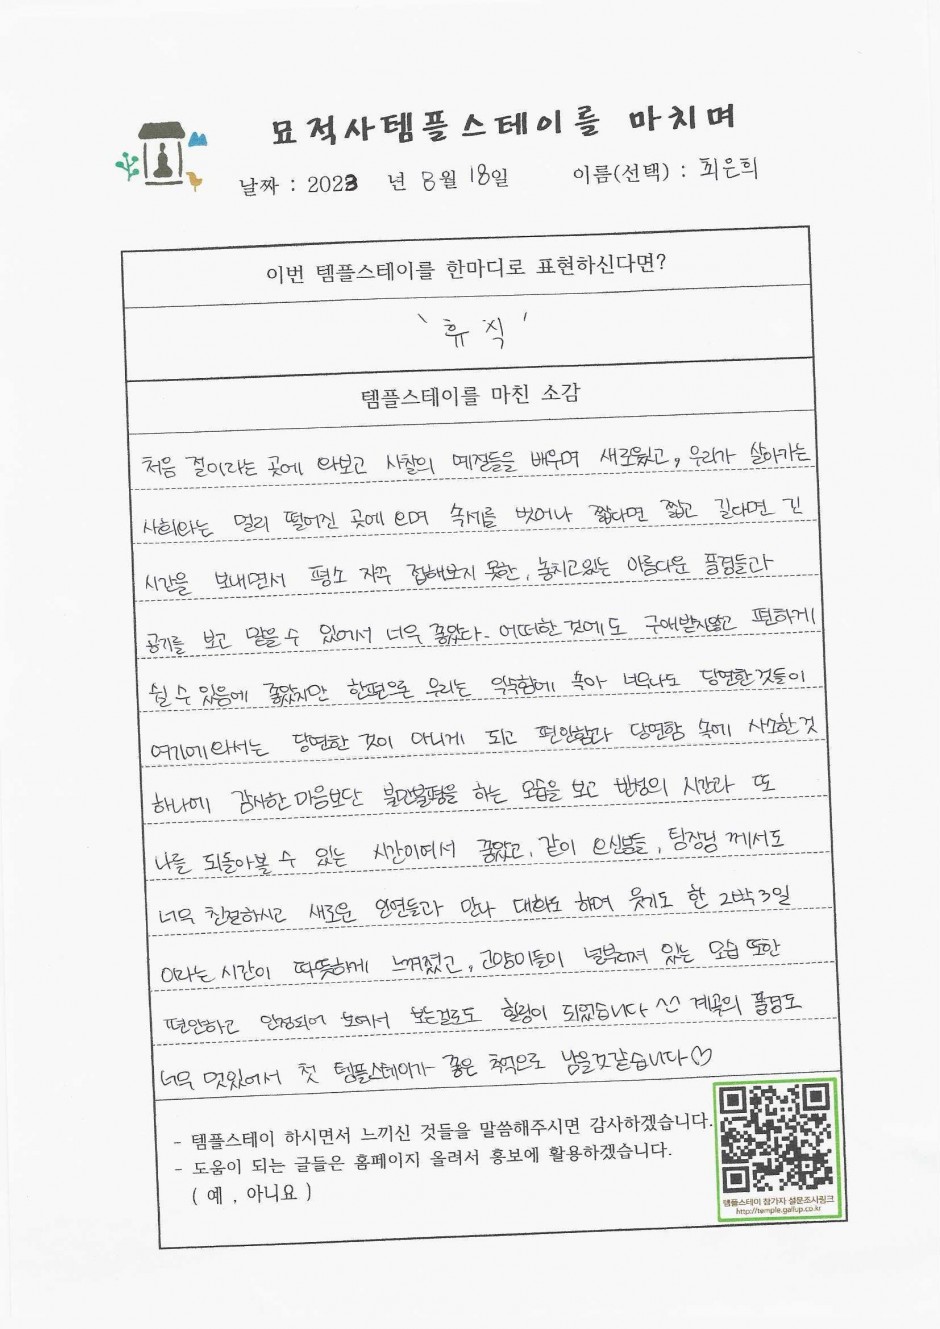 묘적사템플스테이를 마치며
날짜 : 2023 년 8월 18일 이름(선택) : 최은희
이번 템플스테이를 한마디로 표현하신다면?
' 휴식 '
템플스테이를 마친 소감
처음 절이라는 곳에 와보고 사찰의 예절들을 배우며 새로웠고, 우리가 살아가는
사회와는 멀리 떨어진 곳에 오며 속세를 벗어나 짧다면 짧고 길다면 긴
시간을 보내면서 평소 자주 접해보지 못한, 놓치고있는 아름다운 풍경들과
공기를 보고 맡을 수 있어서 너무 좋았다. 어떠한 것에도 구애받지않고 편하게
쉴 수 있음에 좋았지만 한편으론 우리는 익숙함에 속아 너무나도 당연한것들이
여기에 와서는 당연한 것이 아니게 되고 편안함과 당연함 속에 사소한 것
하나에 감사한 마음보단 불만불평을 하는 모습을 보고 반성의 시간과 또
나를 되돌아볼 수 있는 시간이여서 좋았고, 같이 오신분들, 팀장님 께서도
너무 친절하시고 새로운 인연들과 만나 대화도 하며 웃기도 한 2박 3일
이라는 시간이 따뜻하게 느껴졌고, 고양이들이 널부러져 있는 모습 또한
편안하고 안정되어 보여서 보는걸로도 힐링이 되었습니다 ^^ 계곡의 풍경도
너무 멋있어서 첫 템플스테이가 좋은 추억으로 남을것같습니다♡
- 템플스테이 하시면서 느끼신 것들을 말씀해주시면 감사하겠습니다.
- 도움이 되는 글들은 홈페이지 올려서 홍보에 활용하겠습니다.
( 예 , 아니요 )
템플스테이 참가자 설문조사링크
http://temple.gallup.co.kr